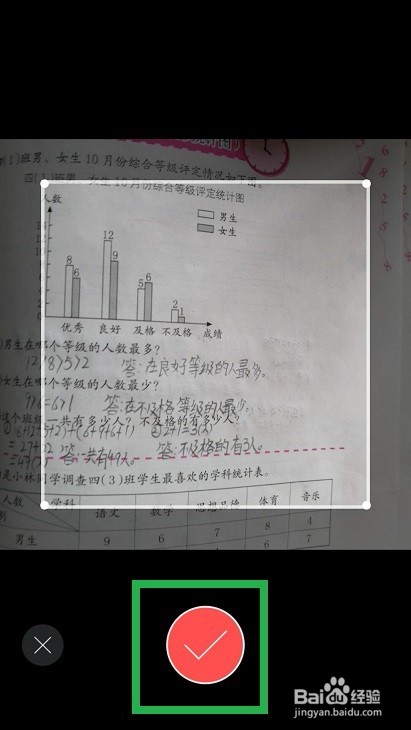 (1)班男、女生10月份综合等级评定情况如下图。
四(1)班男、女生10月份综合等级评定统计图
人数
男生
女生
12
8
9
6
5
6
2
1
优秀 良好 及格 不及格 成绩
男生在哪个等级的人数最多?
12>8>5>2 答:在良好等级的人最多。
女生在哪个等级的人数最少?
9>6=6>1 答:在不及格等级的人最少。
这个班级一共有多少人?不及格的有多少人?
②2+1=3(人)
=27+22 答:一共有49人。 答:不及格的有3人。
=49(人)
是小林同学调查四(3)班学生最喜欢的学科统计表。
人数 学科 语文 数学 思想品德 体育 音乐
男生 9 6 7 8 4
6 7
Baidu经验
jingyan.baidu.com